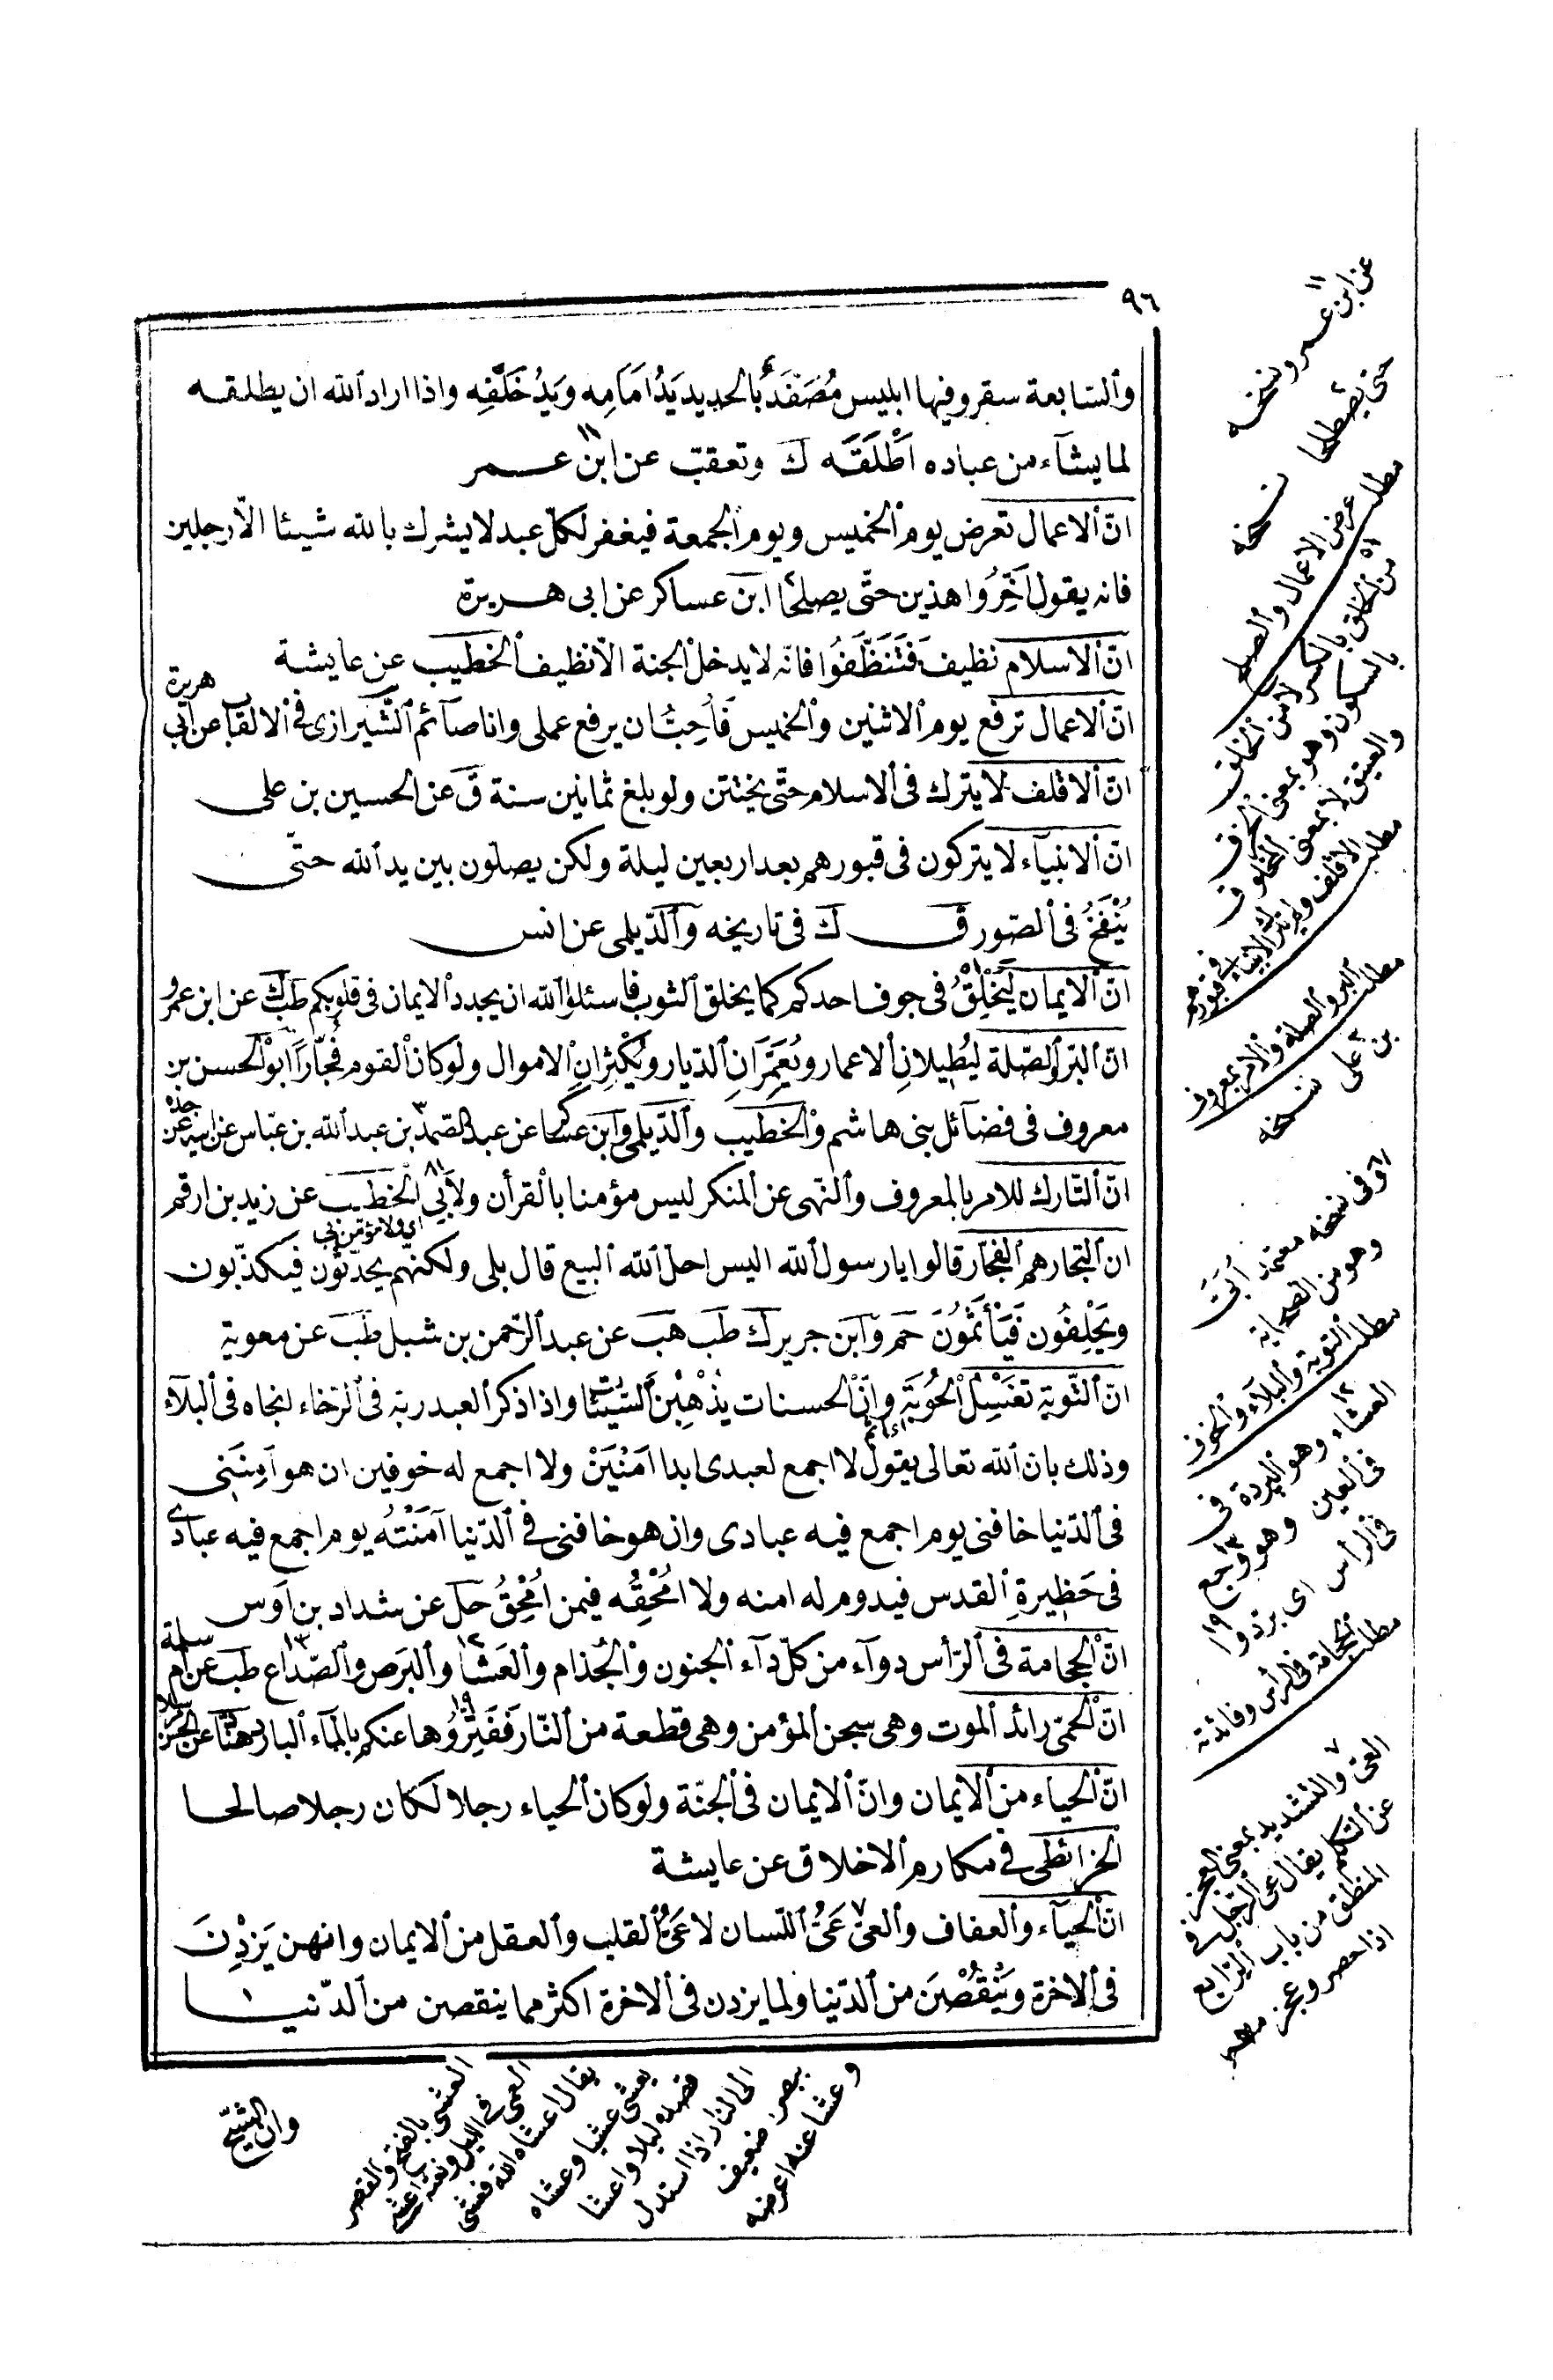 ٩٦
والسابعة سقر وفيها ابليس مُصَفَّدٌ بالحديد يَدٌ امَامِه وَيَدٌ خَلْفِه واذا اراد الله ان يطلقه
لما يشآء من عباده اَطْلَقَه ك وتعقب عن ابن عمر
انّ الاعمال تعرض يوم الخميس ويوم الجمعة فيغفر لكلّ عبد لا يشرك بالله شيئا الّا رجلين
فانه يقول اَخِّرُوا هذين حتّى يصطلحا ابن عساكر عن ابى هريرة
انّ الاسلام نظيف فَتَنَظَّفُوا فانّه لا يدخل الجنة الّا نظيف الخطيب عن عايشة
انّ الاعمال ترفع يوم الاثنين والخميس فَاُحِبُّ ان يرفع عملى وانا صآئم الشيرازى فى الالقاب عن ابى هريرة
انّ الاقلف لا يترك فى الاسلام حتّى يختتن ولو بلغ ثمانين سنة ق عن الحسين بن على
انّ الانبيآء لا يتركون فى قبورهم بعد اربعين ليلة ولكن يصلون بين يد الله حتّى
يُنْفَخُ فى الصور ق ك فى تاريخه والدّيلمى عن انس
انّ الايمان لَيَخْلِقُ فى جوف احدكم كما يخلق الثوب فاسئلوا الله ان يجدد الايمان فى قلوبكم طب ك عن ابن عمرو
انّ البّر والصّلة ليُطِيلانِ الاعمار ويُعَمِّرَانِ الدّيار ويُكْثِرانِ الاموال ولو كان القوم فُجّاراً ابو الحسن بن
معروف فى فضآئل بنى هاشم والخطيب والدّيلمى وابن عساكر عن عبد الصمد بن عبد الله بن عبّاس عن ابيه عن جده
انّ التّارك للامر بالمعروف والنّهى عن المنكر ليس مؤمنا بالقرأن ولا بى الخطيب عن زيد بن ارقم
اى ولا مؤمن بى
ان التجار هم الفجّار قالوا يا رسول الله اليس احلّ الله البيع قال بلى ولكنّهم يحدّثون فيكذّبون
ويَحْلِفُون فَيَأْثَمُونَ حم وابن جرير ك طب هب عن عبد الرّحمن بن شبل طب عن معوية
انّ التّوبة تغسِلُ الحُوبَة وانّ الحسنات يُذْهِبْنَ السّيئات واذا ذكر العبد ربّه فى الرّخاء انجاه فى البلآء
وذلك بان الله تعالى يقول لا اجمع لعبدى ابدا امَنَيْنِ ولا اجمع له خوفين ان هو اَمِنَنِى
فى الدّنيا خافنى يوم اجمع فيه عبادى وان هو خافنى فى الدّنيا آمَنْتُه يوم اجمع فيه عبادى
فى حَظِيرةِ القدس فيدوم له امنه ولا اَمْحَقُه فيمن اَمْحَقُ حل عن شداد بن اَوْس
انّ الحجامة فى الرّأس دوآء من كلّ دآء الجنون والجُذام والعَشَا والبَرَص والصّداع طب عن ام سلمة
انّ الحمّى رائد الموت وهى سجن المؤمن وهى قطعة من النّار فَفَتِّرُوها عنكم بالمآء البارد هناد عن الحسن مرسلا
انّ الحياء من الايمان وانّ الايمان فى الجنّة ولو كان الحياء رجلا لكان رجلا صالحا
الخرائطى فى مكارم الاخلاق عن عايشة
انّ الحيآء والعفاف والعىّ عَىُّ اللّسان لا عَىُّ القلب والعقل من الايمان وانهن يَزِدْنَ
فى الاخرة ويَنْقُصْنَ من الدّنيا ولما يزدن فى الاخرة اكثر مما ينقصن من الدّنيا
عن ابن عمرو نسخه
حتى يصطلحا نسخه
مطلب عرض الاعمال والصلح
من الخلق بالكسر لا من الخلق
بالسكون وهو بمعنى الخرق
والعتيق لا بمعنى المخلوق
مطلب الاقلف ولم يترك الانبياء فى قبورهم
مطلب البر والصلة والامر بمعروف
بن على نسخه
وفى نسخه معتمد أبَىّ
وهو من الصحابة
مطلب التوبة والبلآء والخوف
العشاء وهو البردة فى
فى العين وهو وجع
فى الرأس اى بردوا
مطلب الحجامة فى الرأس وفائدته
العى والتشديد بمعنى العجز
عن التكلم يقال عى الرجل فى
المنطق من باب الرابع
اذا حصر وعجز
العشى بالفتح والقصر
العمى فى الليل
يقال اعشاه الله فعشى
يعشى عشيا وعشاه
قصده ليلا واعشا
الى النار اذا استدل
ببصر ضعيف
وعشا عنه اعرضه
وان الشيخ